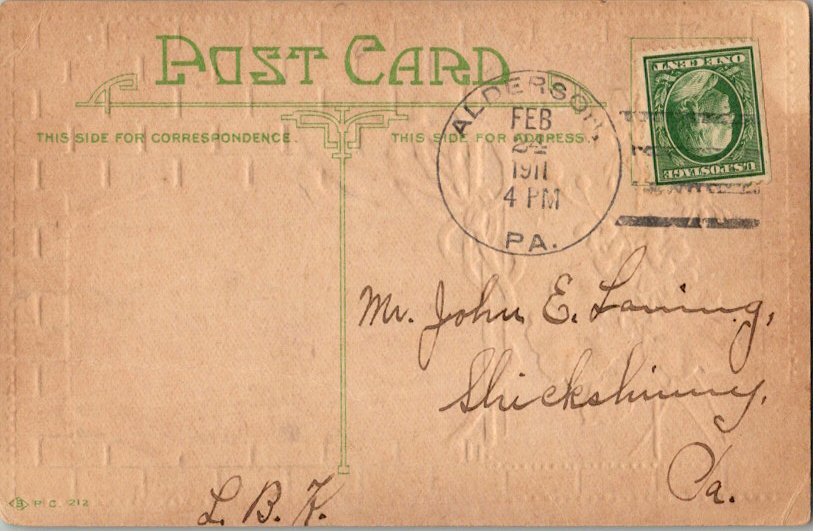 POST CARD
THIS SIDE FOR CORRESPONDENCE.
THIS SIDE FOR ADDRESS.
ALDERSON,
FEB
24
1911
4 PM
PA.
U.S. POSTAGE
ONE CENT
Mr. John E. Laning,
Shickshinny,
Pa.
L. B. K.
B P.C. 212